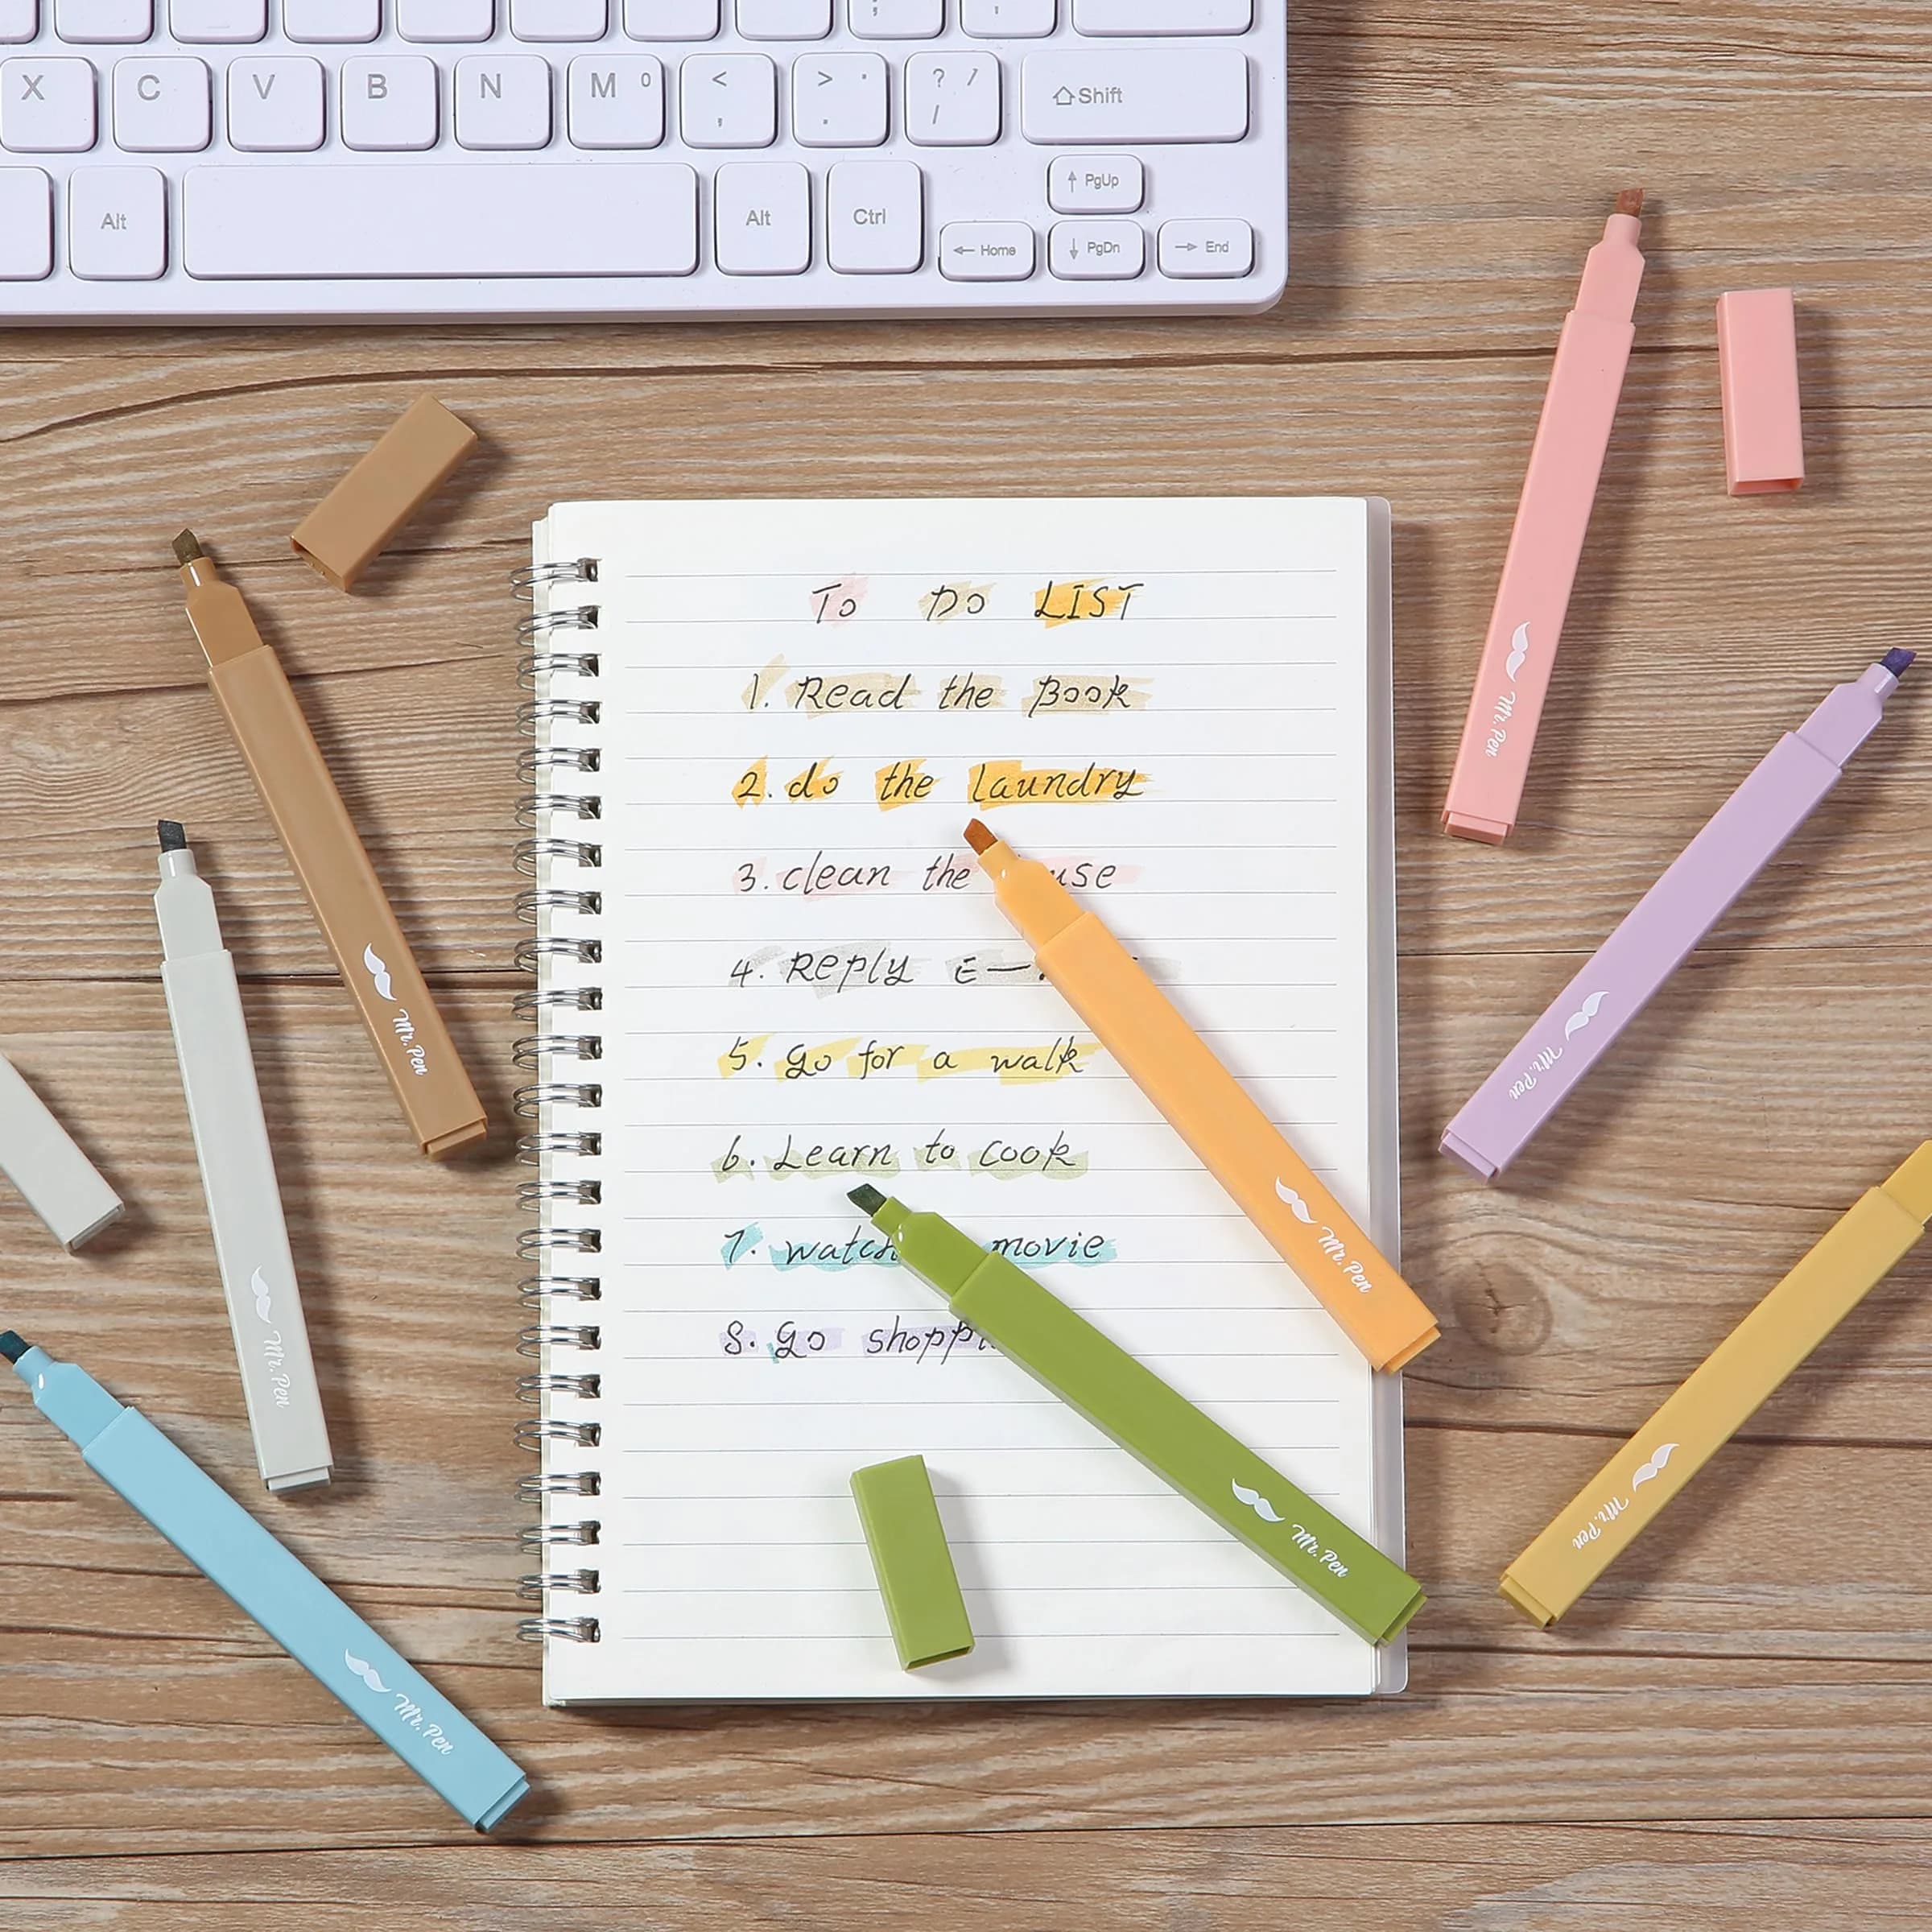 X C V B N M 0 < , > . . ? / /
Shift
Alt Alt Ctrl
PgUp
Home PgDn End
To Do LIST
1. Read the Book
2. do the laundry
3. clean the
4. Reply
5. go for a walk
6. Learn to cook
7. movie
8. go
Mr. Pen
Mr. Pen
Mr. Pen
Mr. Pen
Mr. Pen
Mr. Pen
Mr. Pen
Mr. Pen